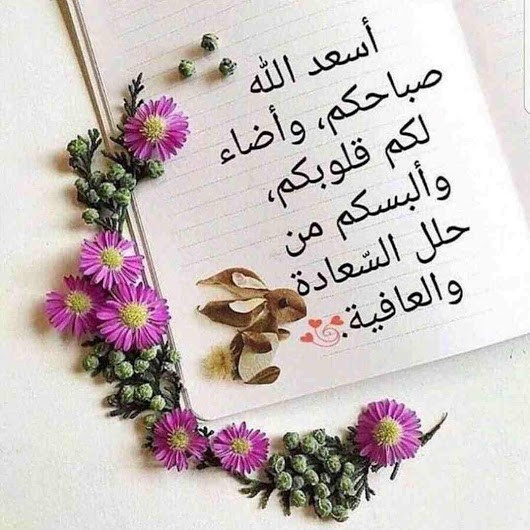 أسعد الله
صباحكم، وأضاء
لكم قلوبكم،
وألبسكم من
حلل السّعادة
والعافية.